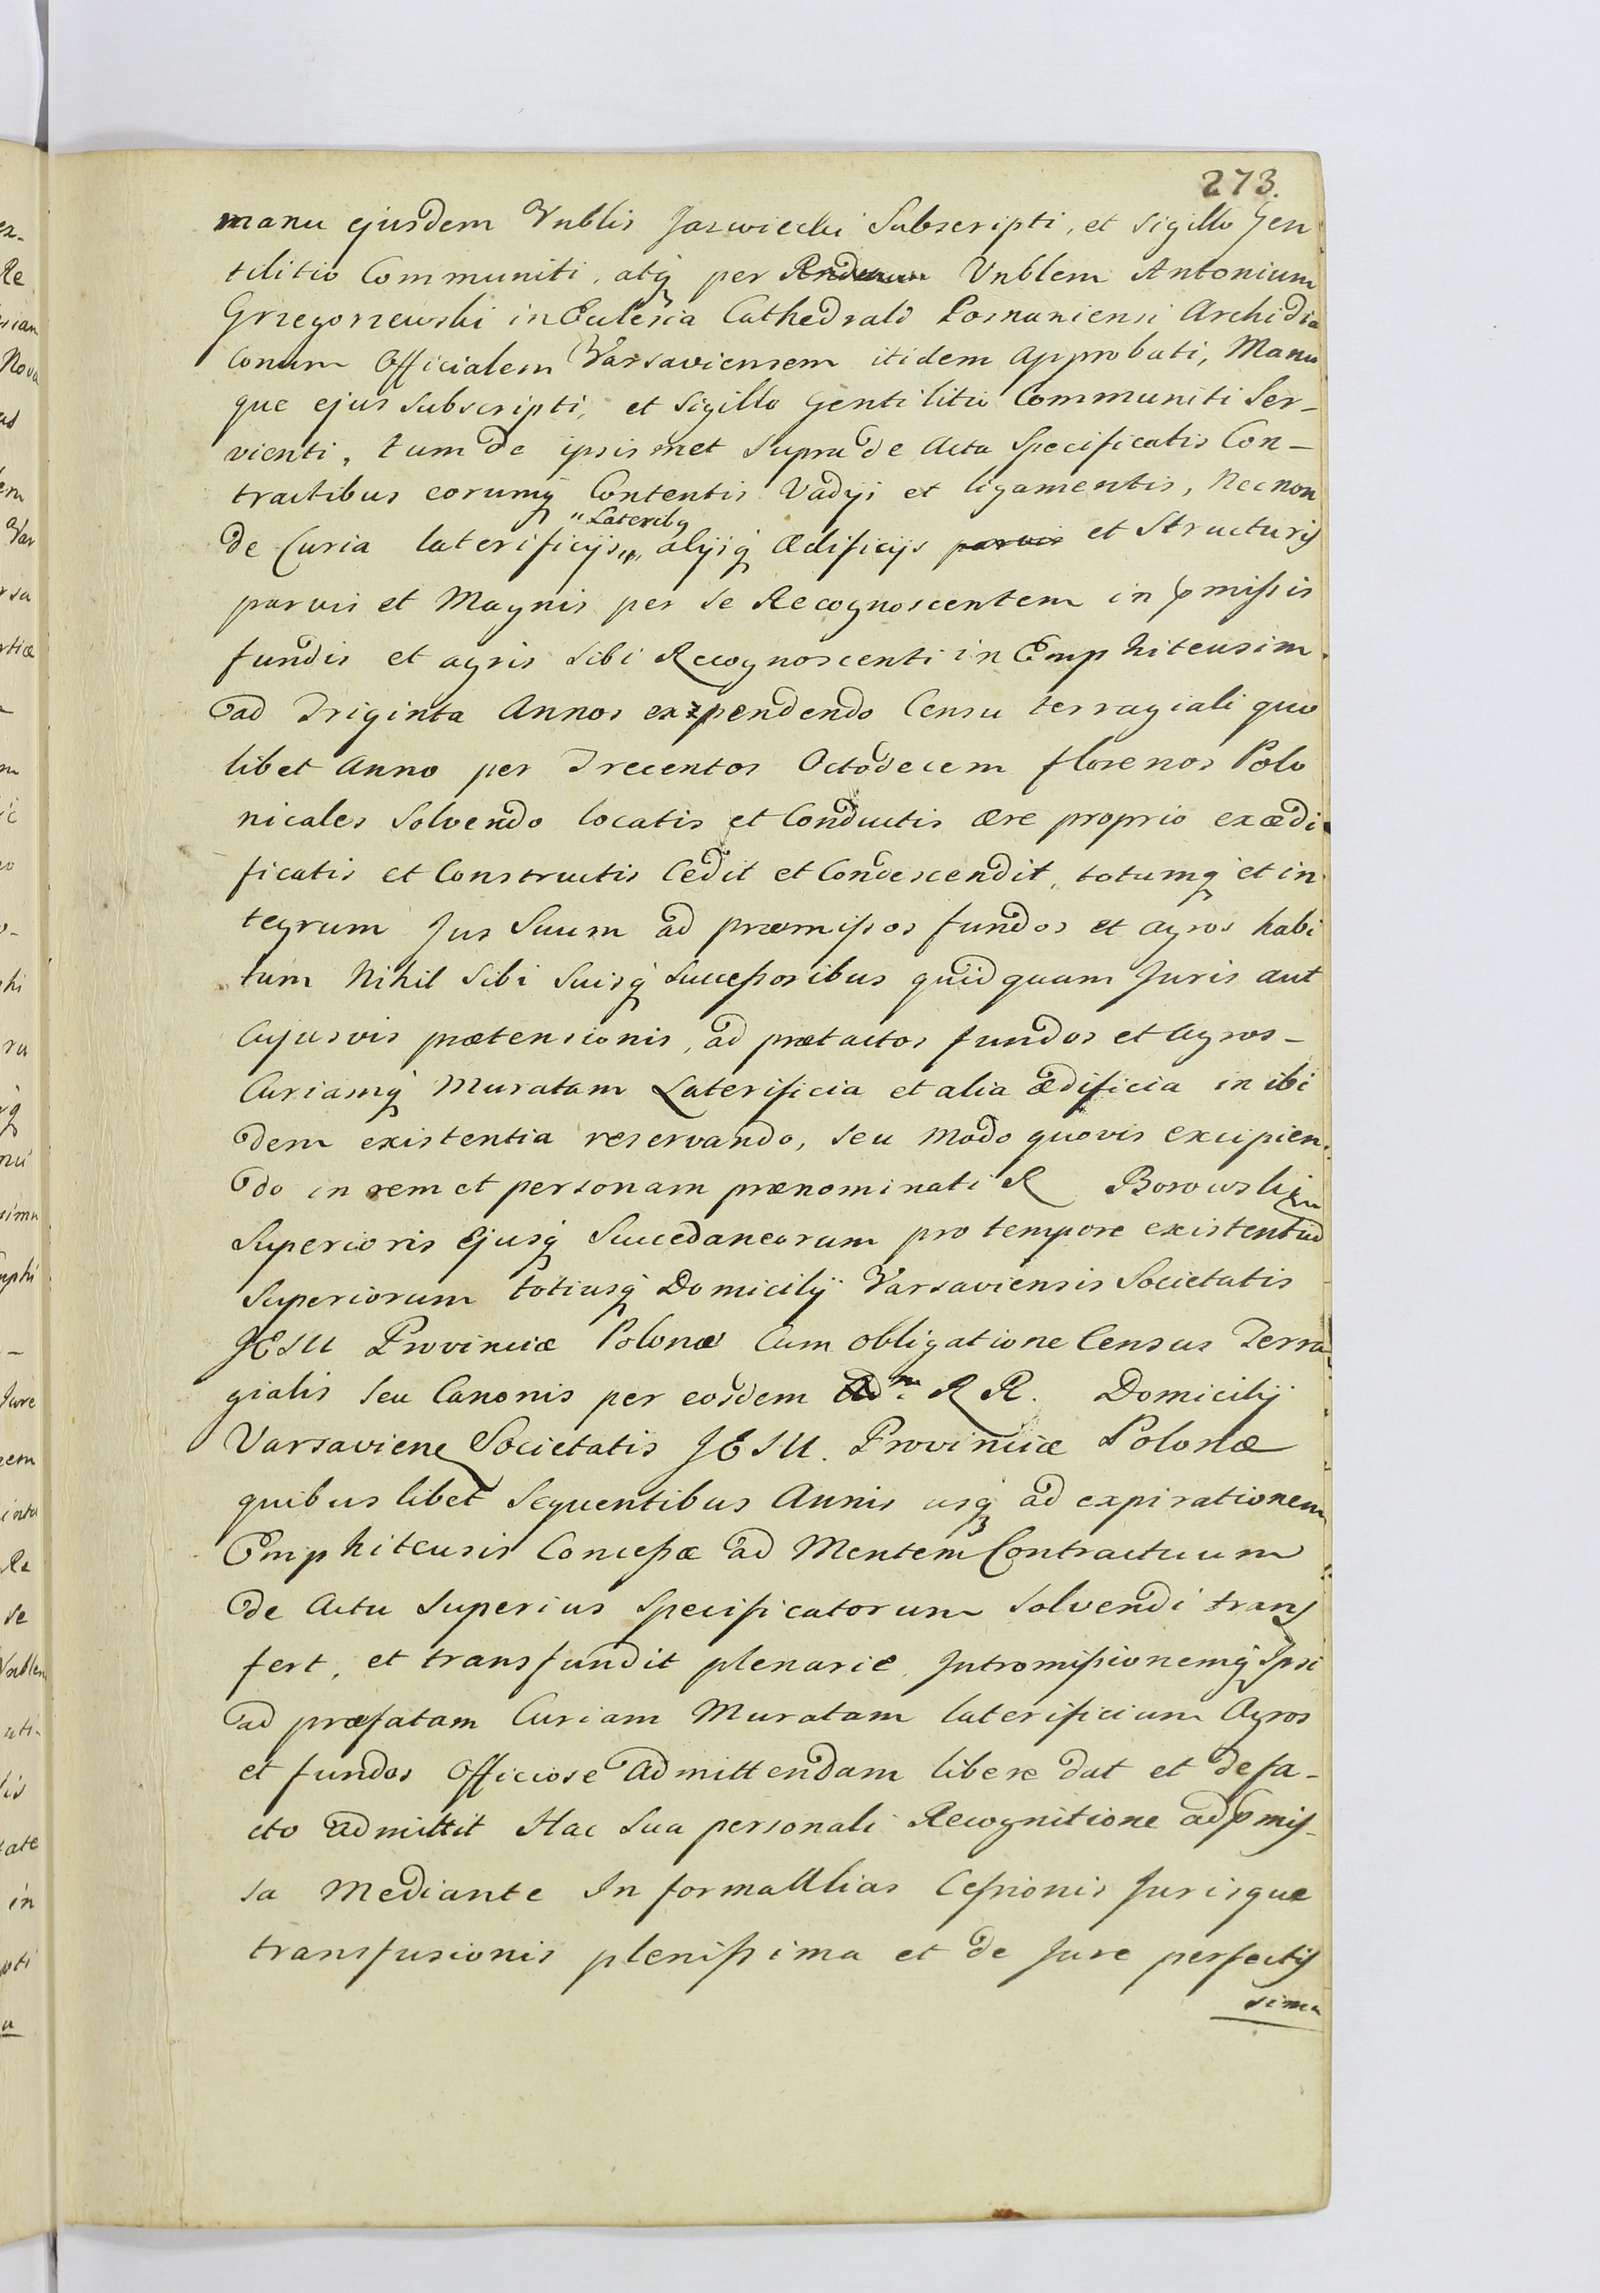 273.
manu ejusdem Vnblis Jazwiecki Subscripti, et sigillo Gen
tilitio Communiti, atq per Rndum Vnblem Antonium
Grzegorzewski in Eulesia Cathedrali Posnaniensi Archidia
conum Officialem Varsaviensem itidem Approbati, Manu
que ejus subscripti, et sigillo Gentilitio Communiti Ser-
vienti, tum de ipsismet supra de Actu Specificatis Con-
tractibus eorumq Contentis Vadiji et ligamentis, Necnon
"Lateribq
de Curia laterificijs,,, alijsq ædificijs parvis et Structuris
parvis et Magnis per se Recognoscentem in pmissis
fundis et agris sibi Recognoscenti in Emphiteusim
ad Triginta Annos expendendo Censu terragiali quo
libet Anno per Trecentos Octodecem florenos Polo
nicales Solvendo locatis et Conductis ære proprio exædi
ficatis et Constructis Cedit et Condescendit, totumq et in
tegrum Jus Suum ad præmissos fundos et agros habi
tum Nihil Sibi Suisq Successoribus quidquam Juris aut
Cujusvis prætensionis, ad prætactos fundos et Agros-
Curiamq Muratam Laterificia et alia ædificia in ibi
dem existentia reservando, seu Modo quovis excipien
do in rem et personam prænominati R Borowski
Superioris Ejusq Succedaneorum pro tempore existentium
Superiorum totiusq Domicilij Varsaviensis Societatis
JESU Provinciæ Polonæ Cum obligatione Census Terra
gialis seu Canonis per eosdem Adm R R. Domicilij
Varsaviene Societatis JESU. Provinciæ Polonæ
quibus libet Sequentibus Annis usq ad expirationem
Emphiteusis Concessæ ad Mentem Contractuum
de Actu Superius Specificatorum solvendi trans
fert, et transfundit plenarie. Intromissionemq Ipsi
ad præfatam Curiam Muratam laterificium Agros
et fundos Officiose Admittendam libere dat et defa-
cto admittit Hac Sua personali Recognitione ad pmis-
sa Mediante In forma Alias Cessionis Jurisque
transfusionis plenissima et de Jure perfectis
sima